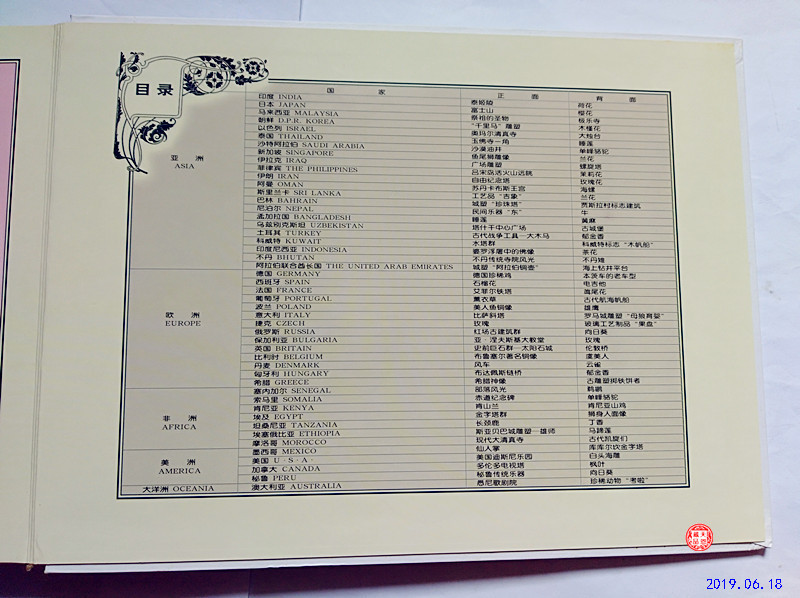 目录
国 家 正 面 背 面
亚 洲
ASIA
印度 INDIA 泰姬陵 荷花
日本 JAPAN 富士山 樱花
马来西亚 MALAYSIA 泰祖的圣物 极乐寺
朝鲜 D.P.R. KOREA "千里马"雕塑 木槿花
以色列 ISRAEL 奥玛尔清真寺 大烛台
泰国 THAILAND 玉佛寺一角 睡莲
沙特阿拉伯 SAUDI ARABIA 沙漠油井 单峰骆驼
新加坡 SINGAPORE 鱼尾狮雕像 兰花
伊拉克 IRAQ 广场雕塑 螺旋塔
菲律宾 THE PHILIPPINES 吕宋岛活火山远眺 茉莉花
伊朗 IRAN 自由纪念塔 玫瑰花
阿曼 OMAN 苏丹卡布斯王宫 海螺
斯里兰卡 SRI LANKA 工艺品"吉象" 兰花
巴林 BAHRAIN 城塑"珍珠塔" 贾斯拉村标志建筑
尼泊尔 NEPAL 民间乐器"东" 牛
孟加拉国 BANGLADESH 睡莲 黄麻
乌兹别克斯坦 UZBEKISTAN 塔什干中心广场 古城堡
土耳其 TURKEY 古代战争工具—大木马 郁金香
科威特 KUWAIT 水塔群 科威特标志"木帆船"
印度尼西亚 INDONESIA 婆罗浮屠中的佛像 茶花
不丹 BHUTAN 不丹传统寺院风光 不丹雉
阿拉伯联合酋长国 THE UNITED ARAB EMIRATES 城塑"阿拉伯铜壶" 海上钻井平台
欧 洲
EUROPE
德国 GERMANY 德国珍稀鸡 本茨车的老车型
西班牙 SPAIN 石榴花 电吉他
法国 FRANCE 艾菲尔铁塔 鸢尾花
葡萄牙 PORTUGAL 薰衣草 古代航海帆船
波兰 POLAND 美人鱼铜像 雄鹰
意大利 ITALY 比萨斜塔 罗马城雕塑"母狼育婴"
捷克 CZECH 玫瑰 玻璃工艺制品"果盘"
俄罗斯 RUSSIA 红场古建筑群 向日葵
保加利亚 BULGARIA 亚·涅夫斯基大教堂 玫瑰
英国 BRITAIN 史前巨石群—太阳石城 伦敦桥
比利时 BELGIUM 布鲁塞尔著名铜像 虞美人
丹麦 DENMARK 风车 云雀
匈牙利 HUNGARY 布达佩斯链桥 郁金香
希腊 GREECE 希腊神像 古雕塑掷铁饼者
非 洲
AFRICA
塞内加尔 SENEGAL 部落风光 鹈鹕
索马里 SOMALIA 赤道纪念碑 单峰骆驼
肯尼亚 KENYA 肯山兰 肯尼亚山鸡
埃及 EGYPT 金字塔群 狮身人面像
坦桑尼亚 TANZANIA 长颈鹿 丁香
埃塞俄比亚 ETHIOPIA 斯亚贝巴城雕塑—雄师 马蹄莲
摩洛哥 MOROCCO 现代大清真寺 古代凯旋们
美 洲
AMERICA
墨西哥 MEXICO 仙人掌 库库尔坎金字塔
美国 U·S·A· 美国迪斯尼乐园 白头海雕
加拿大 CANADA 多伦多电视塔 枫叶
秘鲁 PERU 秘鲁传统乐器 向日葵
大洋洲 OCEANIA 澳大利亚 AUSTRALIA 悉尼歌剧院 珍稀动物"考啦"
2019.06.18